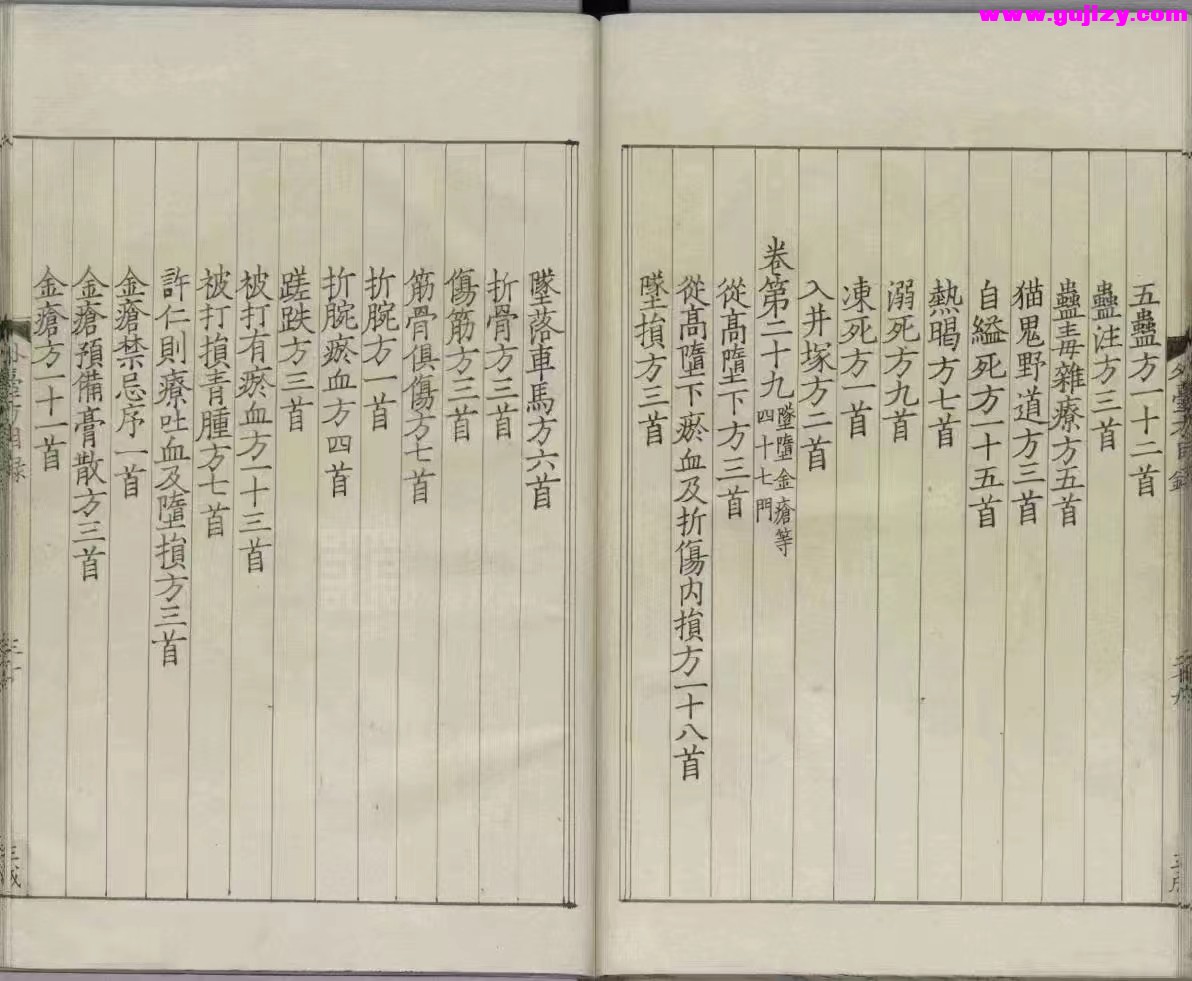 www.gujizy.com
五蠱方一十二首
蠱注方三首
蠱毒雜療方五首
猫鬼野道方三首
自縊死方一十五首
熱暍方七首
溺死方九首
凍死方一首
入井塚方二首
卷第二十九墜墮金瘡等四十七門
從高墮下方三首
從高墮下瘀血及折傷内損方一十八首
墜損方三首
墜落車馬方六首
折骨方三首
傷筋方三首
筋骨俱傷方七首
折腕方一首
折腕瘀血方四首
蹉跌方三首
被打有瘀血方一十三首
被打損青腫方七首
許仁則療吐血及墮損方三首
金瘡禁忌序一首
金瘡預備膏散方三首
金瘡方一十一首